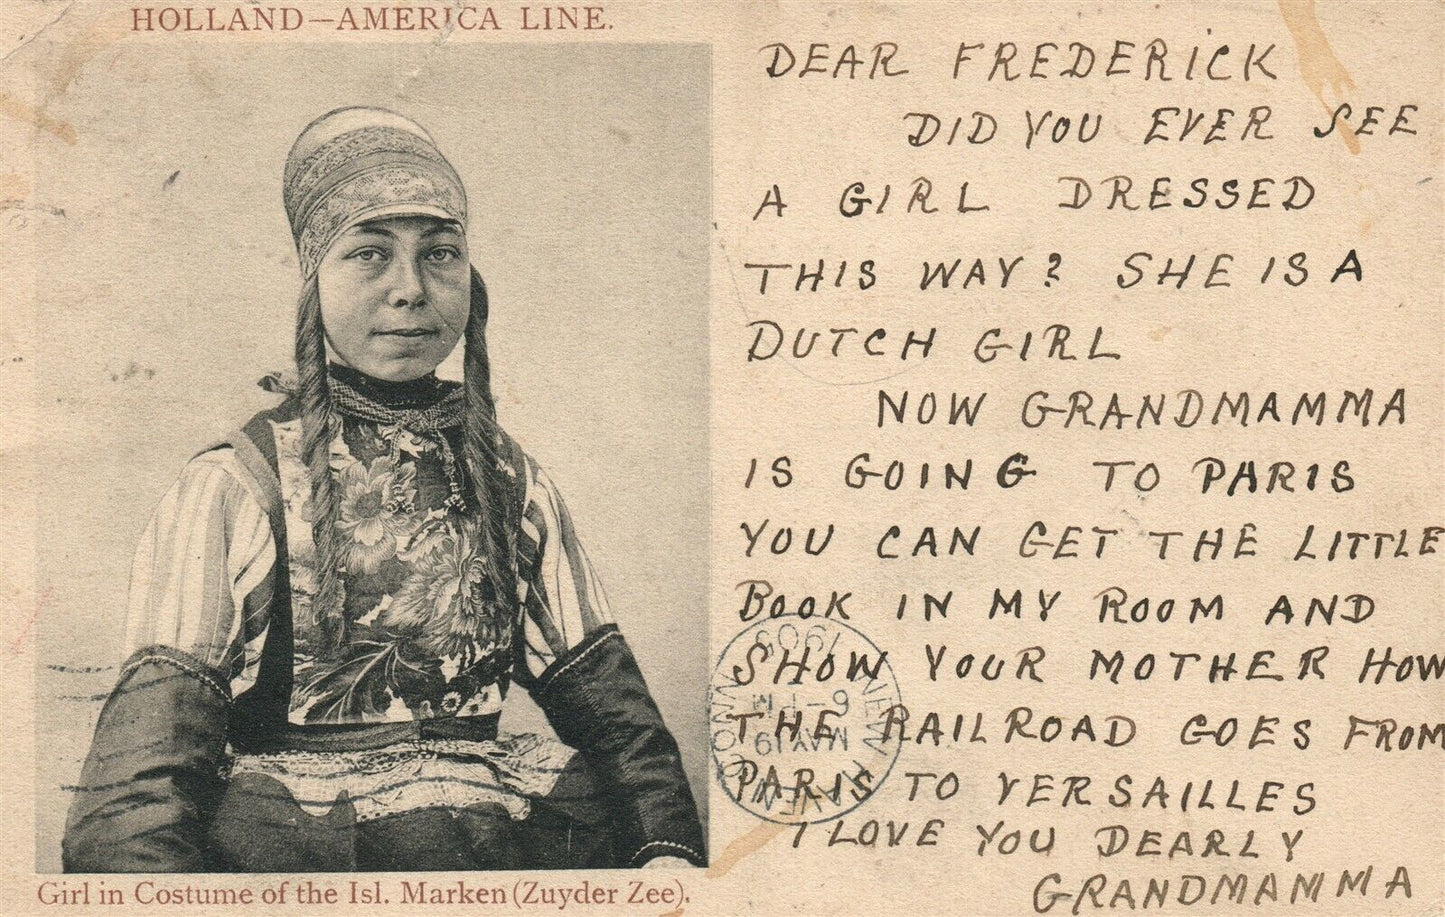 HOLLAND—AMERICA LINE.
DEAR FREDERICK
DID YOU EVER SEE
A GIRL DRESSED
THIS WAY? SHE IS A
DUTCH GIRL
NOW GRANDMAMMA
IS GOING TO PARIS
YOU CAN GET THE LITTLE
BOOK IN MY ROOM AND
SHOW YOUR MOTHER HOW
THE RAILROAD GOES FROM
PARIS TO VERSAILLES
I LOVE YOU DEARLY
GRANDMAMMA
NEW HAVEN CONN
MAY 19
6-PM
1903
Girl in Costume of the Isl. Marken (Zuyder Zee).